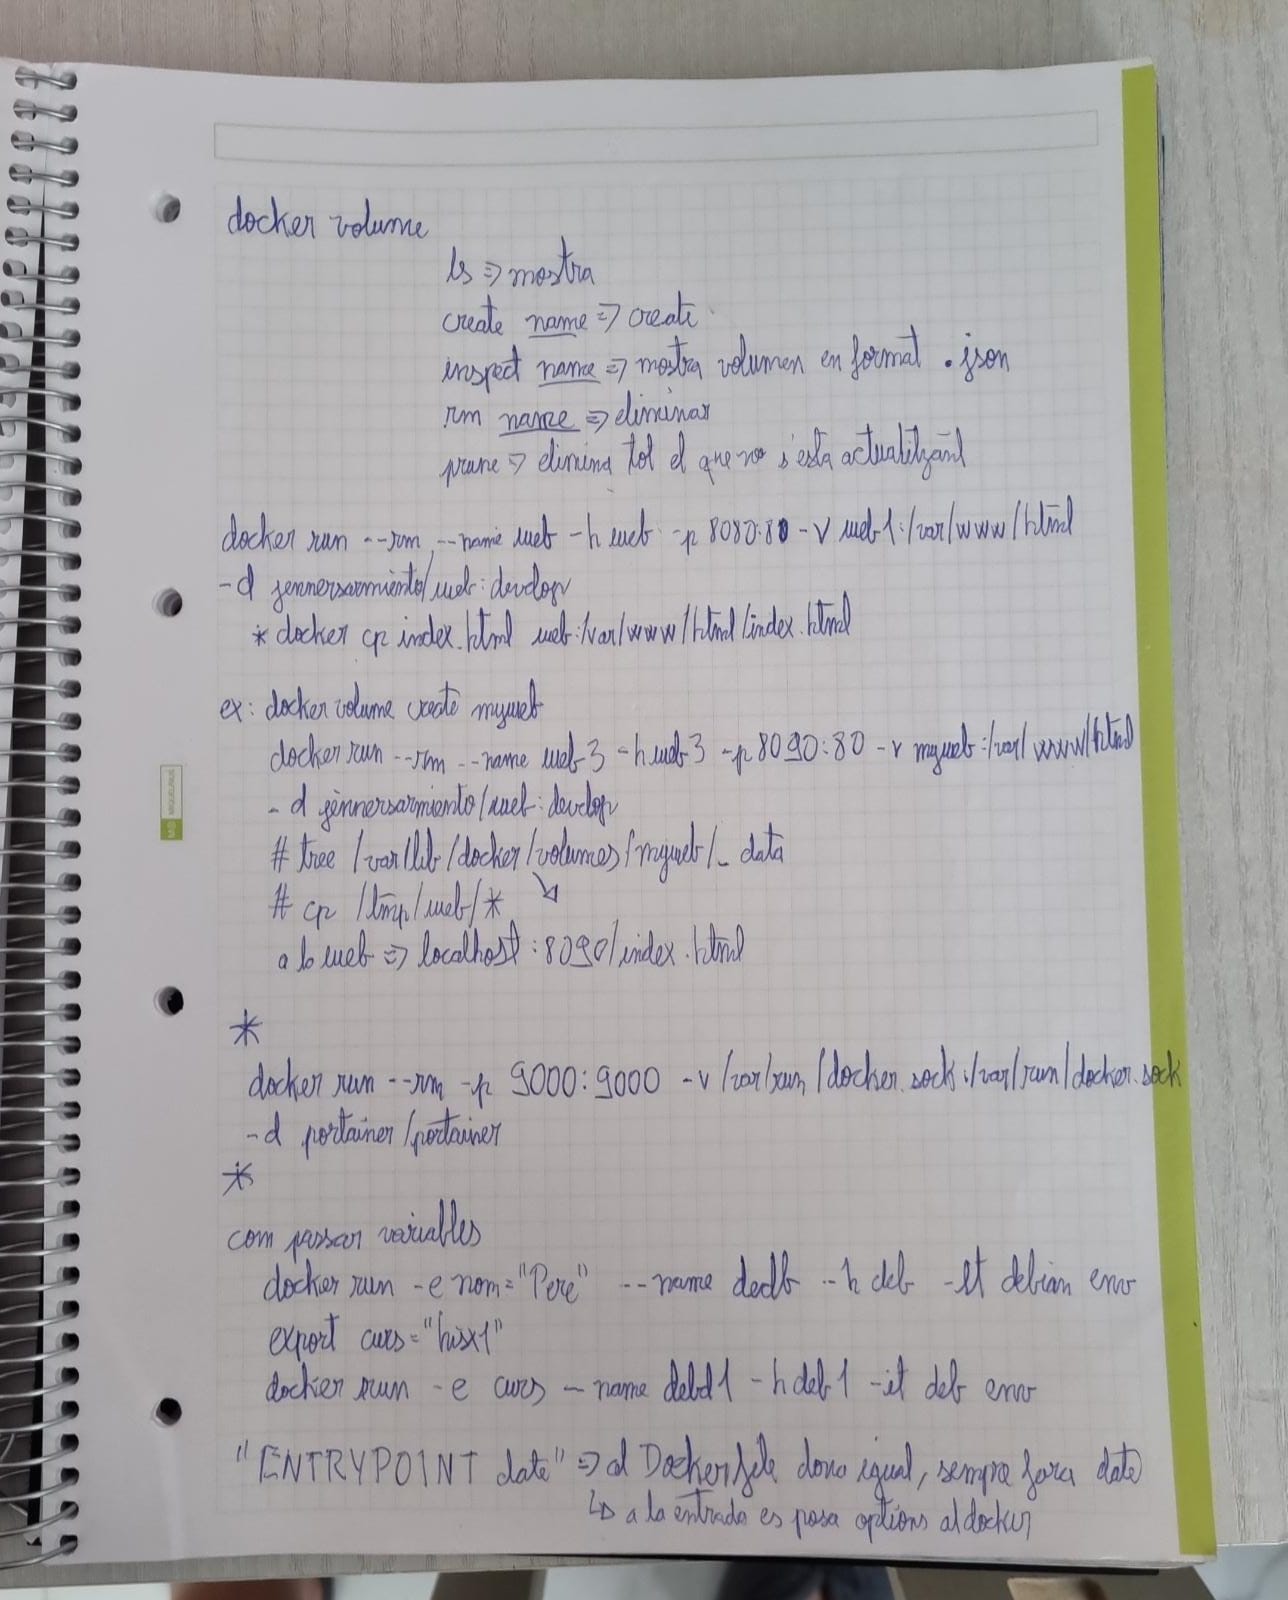 docker volume
ls => mostra
create name => create
inspect name => mostra volumen en format .json
rm name => eliminar
prune => elimina tot el que no s'està actualitzànt
docker run --rm --name web -h web -p 8080:80 -v web1:/var/www/html
-d jennersarmiento/web:develop
* docker cp index.html web:/var/www/html/index.html
ex: docker volume create myweb
docker run --rm --name web3 -h web3 -p 8090:80 -v myweb:/var/www/html
-d jennersarmiento/web:develop
# tree /var/lib/docker/volumes/myweb/_data
# cp /tmp/web/* ↘
a la web => localhost:8090/index.html
*
docker run --rm -p 9000:9000 -v /var/run/docker.sock:/var/run/docker.sock
-d portainer/portainer
*
com passar variables
docker run -e nom="Pere" --name -h deb -it debian env
export curs="hisx1"
docker run -e curs --name debd1 -h deb1 -it deb env
"ENTRYPOINT date" => al Dockerfile dona igual, sempre farà date
↳ a la entrada es posa options al docker